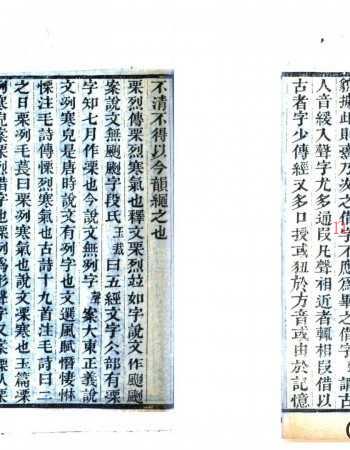 貎據此則
人音緩入聲字尤多通段凡聲相近者輒相段借以
古者字少傳經又多口授或狃於方音或由於記憶
不清不得以今韻繩之也
栗烈傳栗烈寒氣也釋文栗烈竝如字說文作颲颲
案說文無颲颲字段氏玉裁曰五經文字仌部有凓
字知七月作凓也今說文無冽字聲案大東正義說
文冽寒皃是唐時說文有冽字也文選風賦憯悽惏
慄注毛詩傳慄冽寒氣也古詩十九首注毛詩曰二
之日栗冽毛萇曰栗冽寒氣也說文凓寒也玉篇凓
冽寒皃案栗烈借字也凓冽爲形聲字
12